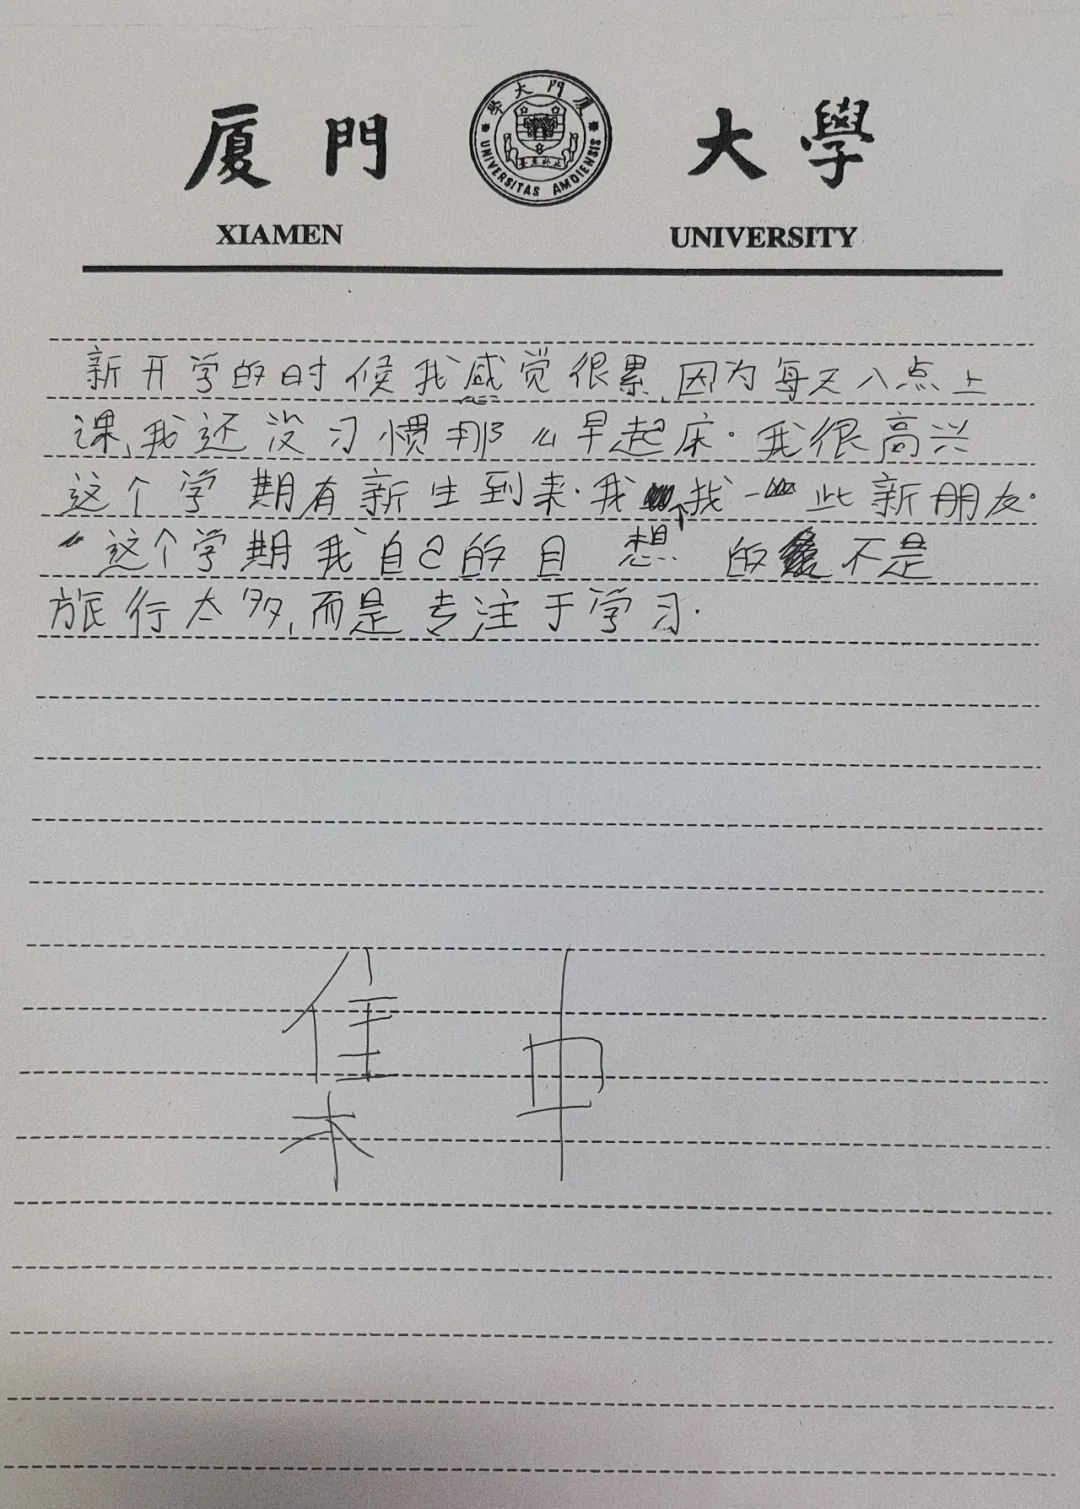 厦門大學
廈門大學
UNIVERSITAS AMOIENSIS
XIAMEN UNIVERSITY
新开学的时候我感觉很累,因为每天八点上
课,我还没习惯那么早起床.我很高兴
这个学期有新生到来.我想找一些新朋友.
这个学期我自己的目的不是
旅行太多,而是专注于学习.
集 中